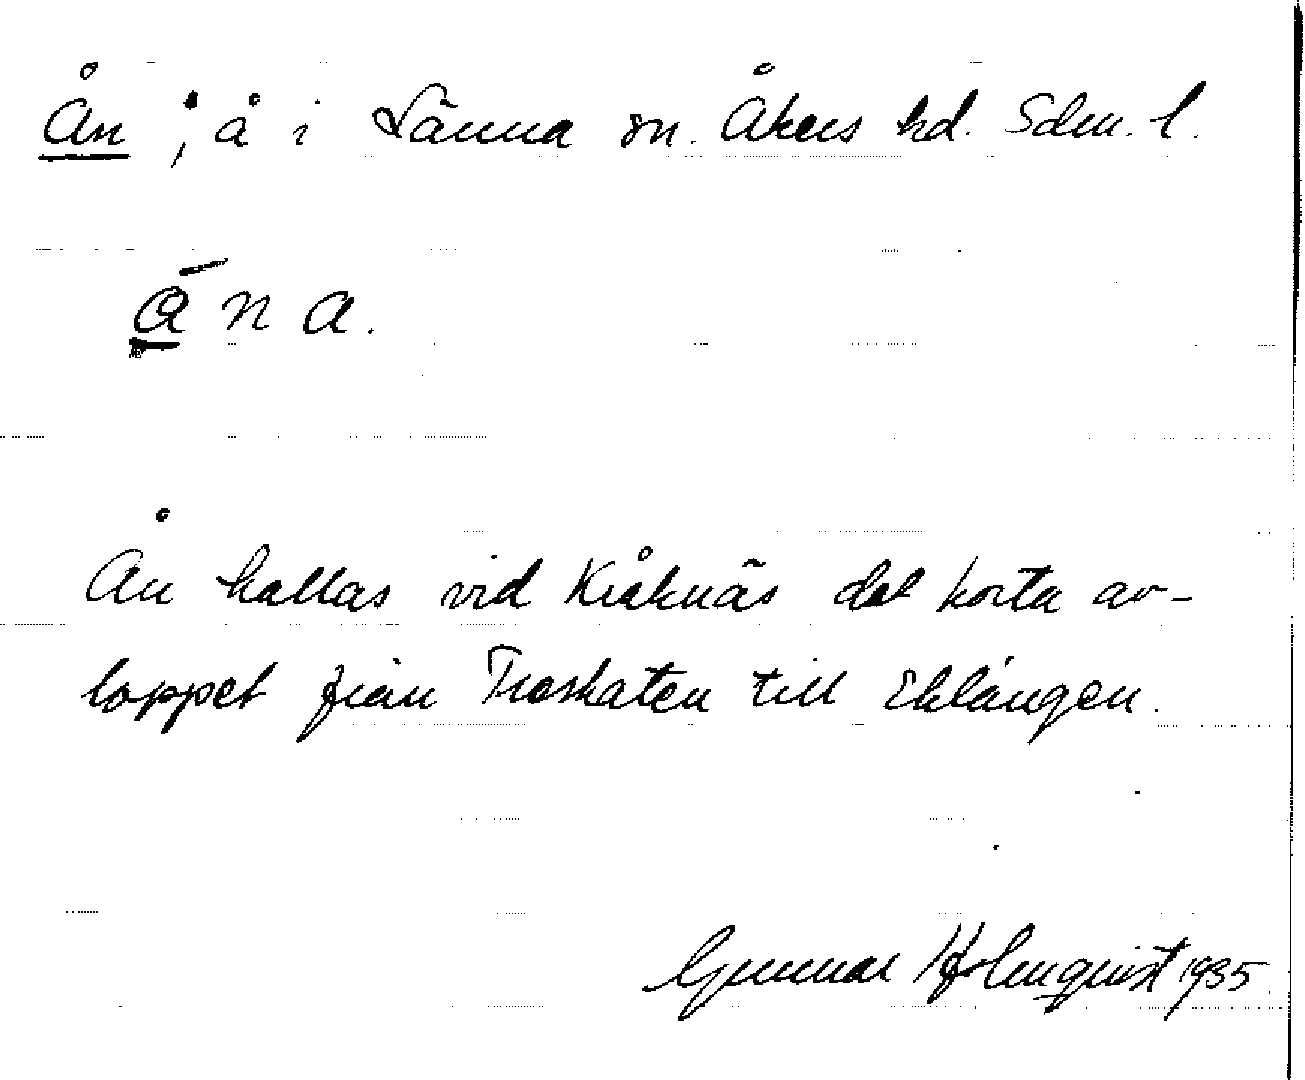 Ån ; å i Länna sn. Åkers hd. Sdm. l.
á̱ n a.
Ån kallas vid Kråknäs det korta av-
loppet från Troskaten till Eklången.
Gunnar Holmquist 1935